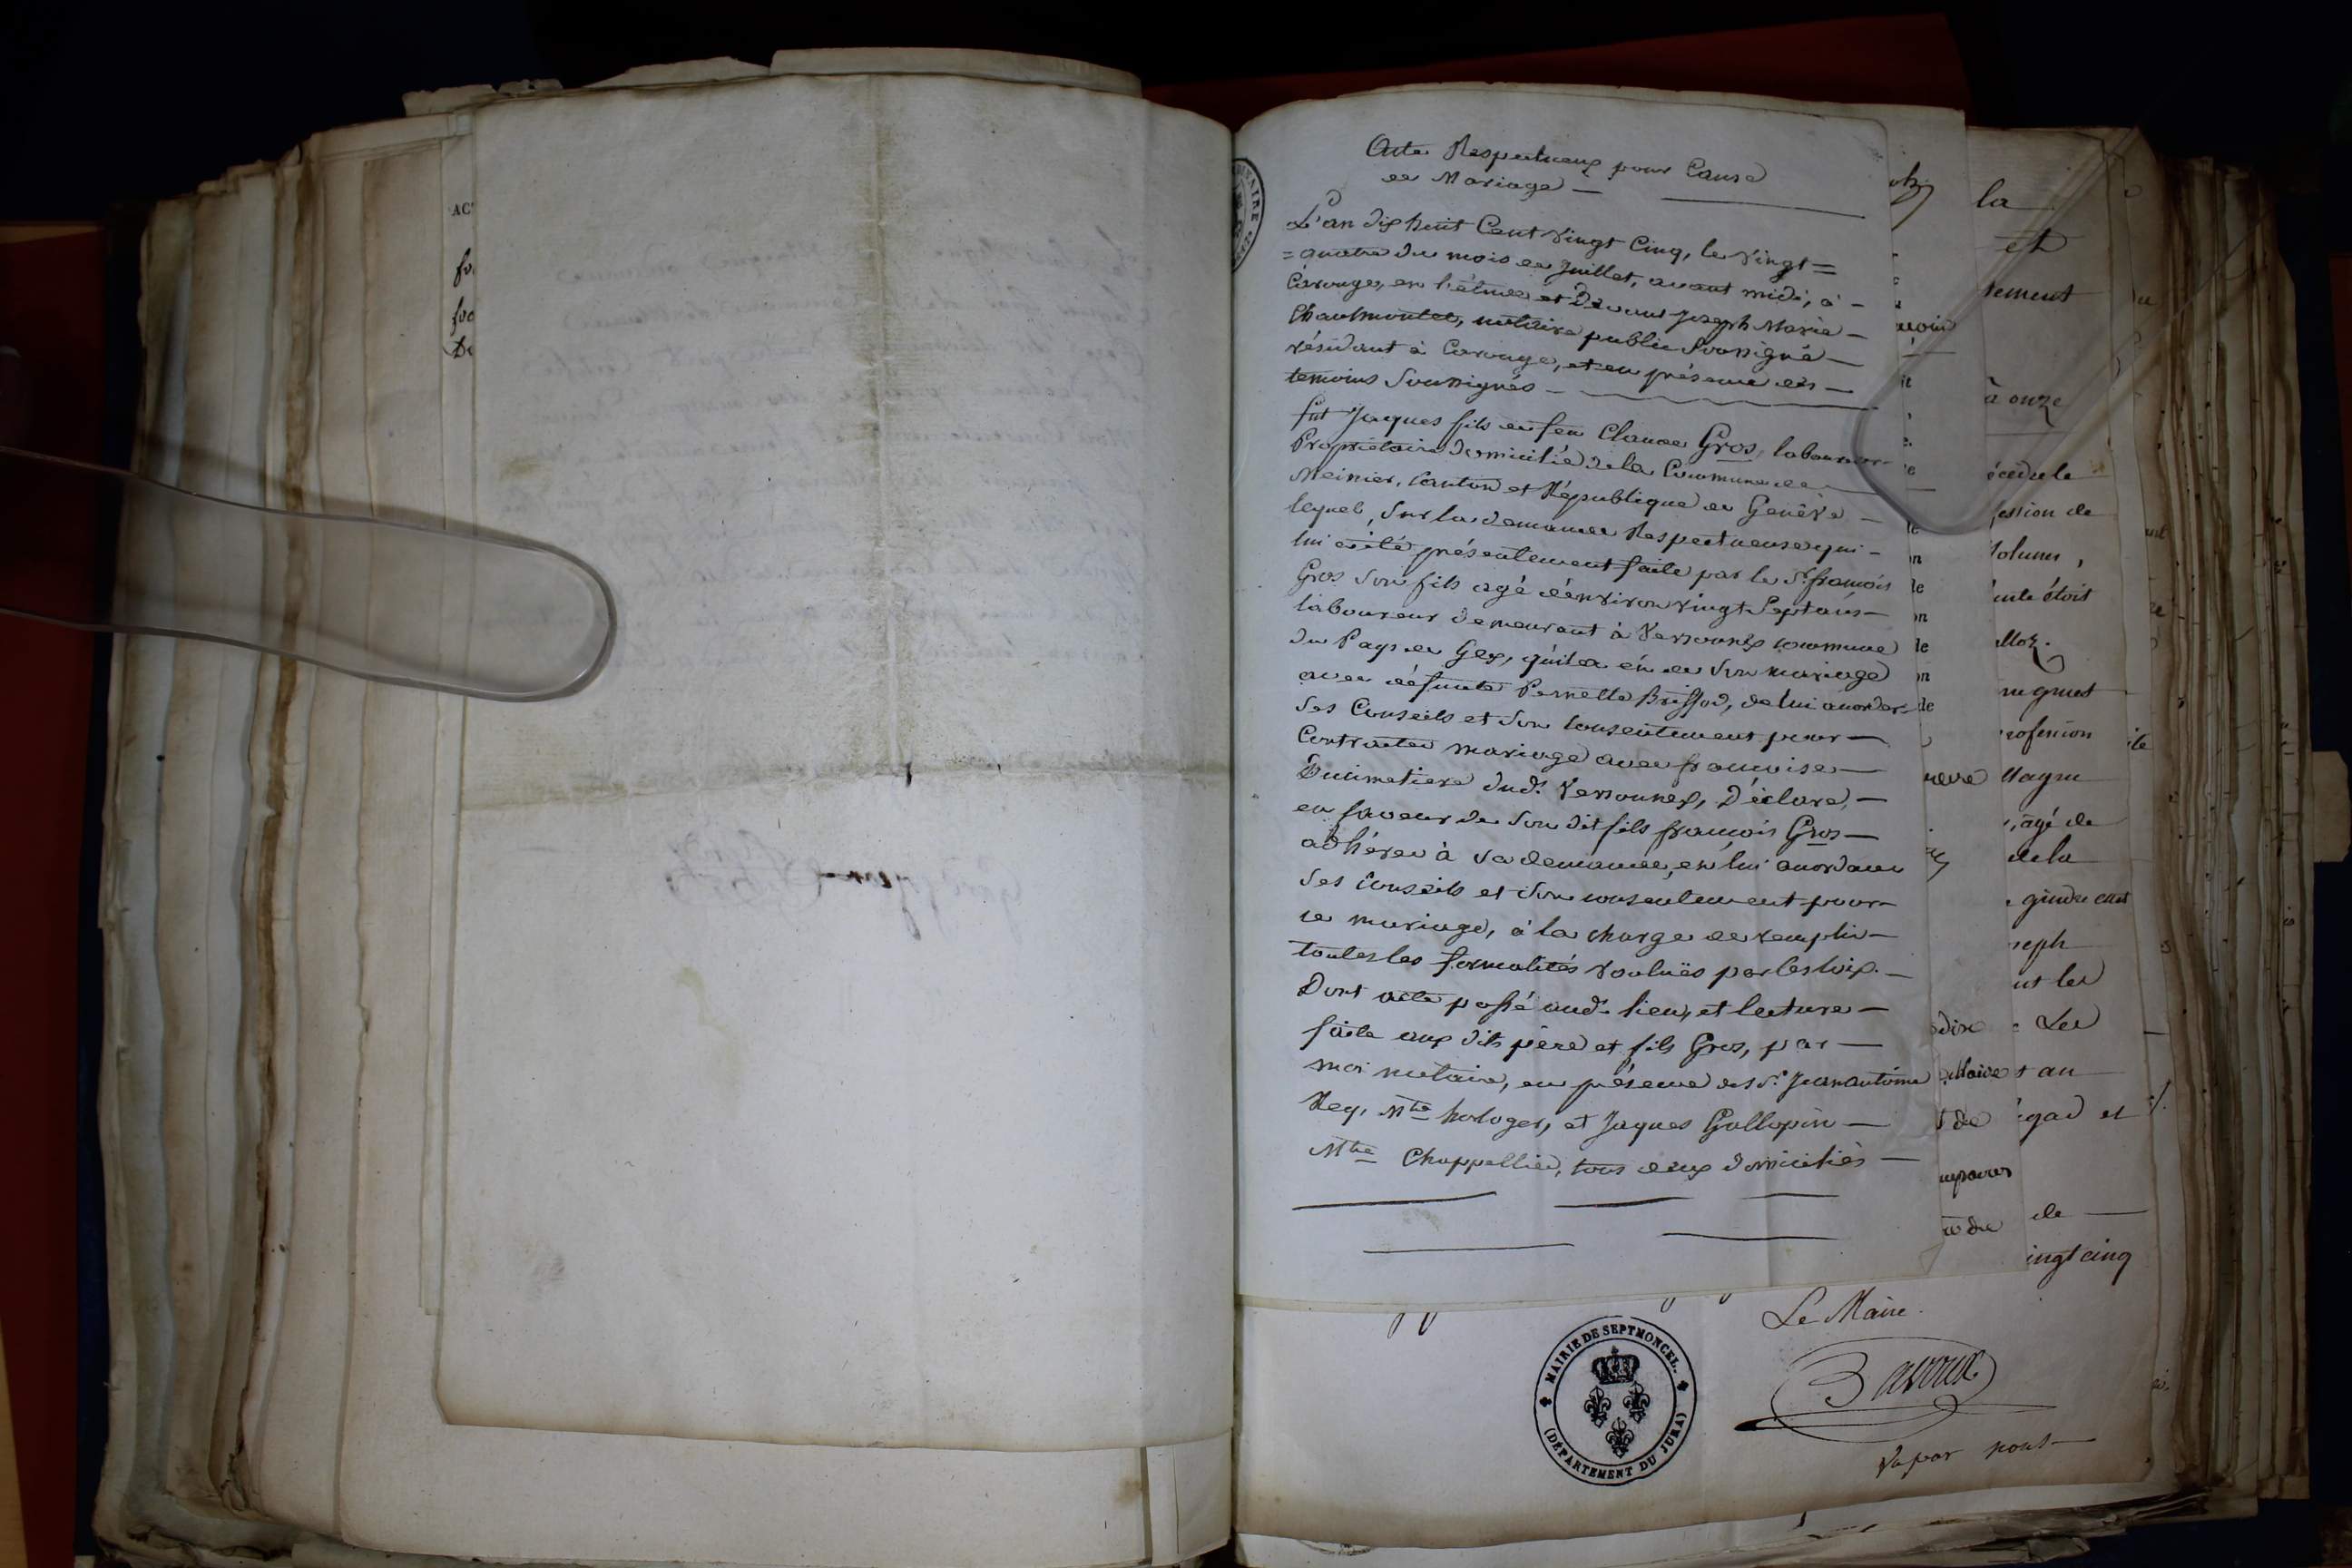 Acte Respectueux pour Cause
de Mariage —
L'an dix huit Cent vingt Cinq, le vingt=
=quatre du mois de Juillet, avant midi, à —
Carouge, en l'étude et Devant Joseph Marie —
Chaulmontet, notaire public Soussigné —
résidant à Carouge, et en présence des —
temoins Soussignés —
fut Jaques fils de feu Claude Gros, laboureur
Propriétaire Domicilié de la Commune de —
Meinier, Canton et République de Genève —
lequel, Sur la demande Respectueuse qui —
lui a été présentement faite par le Sr. françois
Gros Son fils agé d'environ vingt Sept ans —
laboureur demeurant à Versonnex commune
du Pays de Gex, qu'il a eu de Son mariage
avec défunte Pernette Brissod, de lui accorder
Ses Conseils et Son Consentement pour —
Contracter mariage avec françoise —
Ducimetiere dudt. Versonnex, Déclare, —
en faveur de Son dit fils françois Gros —
adhérer à Sa demande, en lui accordant
Ses Conseils et Son consentement pour —
ce mariage, à la charge de remplir —
toutes les formalités voulües par les loix. —
Dont acte passé audt. lieu, et lecture —
faite aux dits père et fils Gros, par —
moi notaire, en présence des Sr. Jean antoine
Rey, Mtre horloger, et Jaques Gallopin —
Mtre Chappellier, tous deux domiciliés —
AC
fo
Dt
la
et
tement
à onze
écedule
ession de
ente étoit
rofession
, âgé de
de la
reph
ut les
Les
t au
égad et
de
ingt cinq
Le Maire.
MAIRIE DE SEPTMONCEL.
(DÉPARTEMENT DU JURA)
Vu par nous —